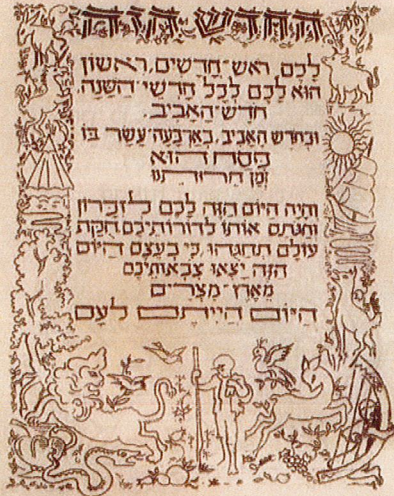 החדש הזה
לכם, ראש־חדשים, ראשון
הוא לכם לכל חדשי השנה,
חדש־האביב,
ובחדש האביב, בארבעה־עשר בו
פסח הוא
זמן חרותנו
והיה היום הזה לכם לזכרון
וחגתם אותו לדורותיכם חקת
עולם תחגהו כי בעצם היום
הזה יצאו צבאותיכם
מארץ־מצרים
היום הייתם לעם